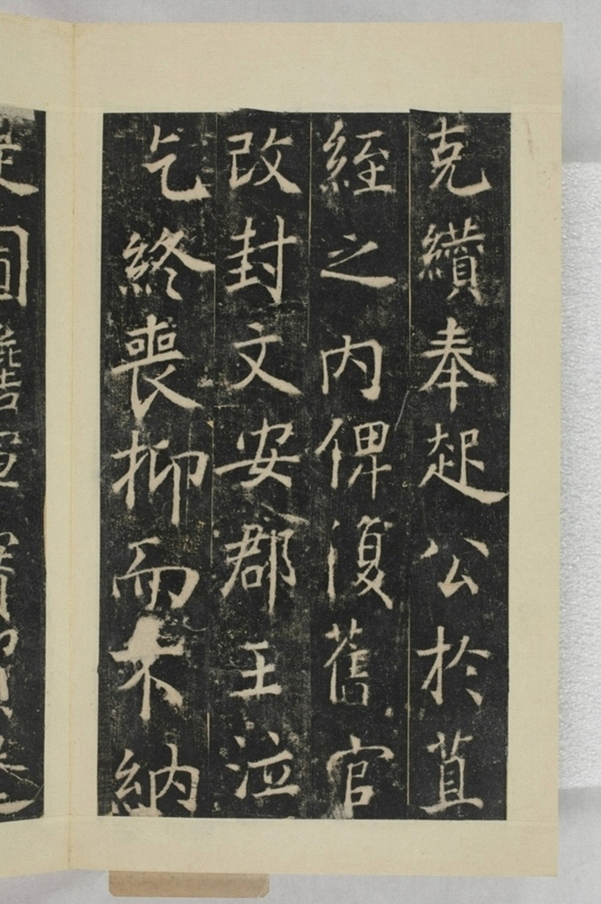 克纘奉起公於苴
絰之内俾復舊官
改封文安郡王泣
乞終喪抑而不納